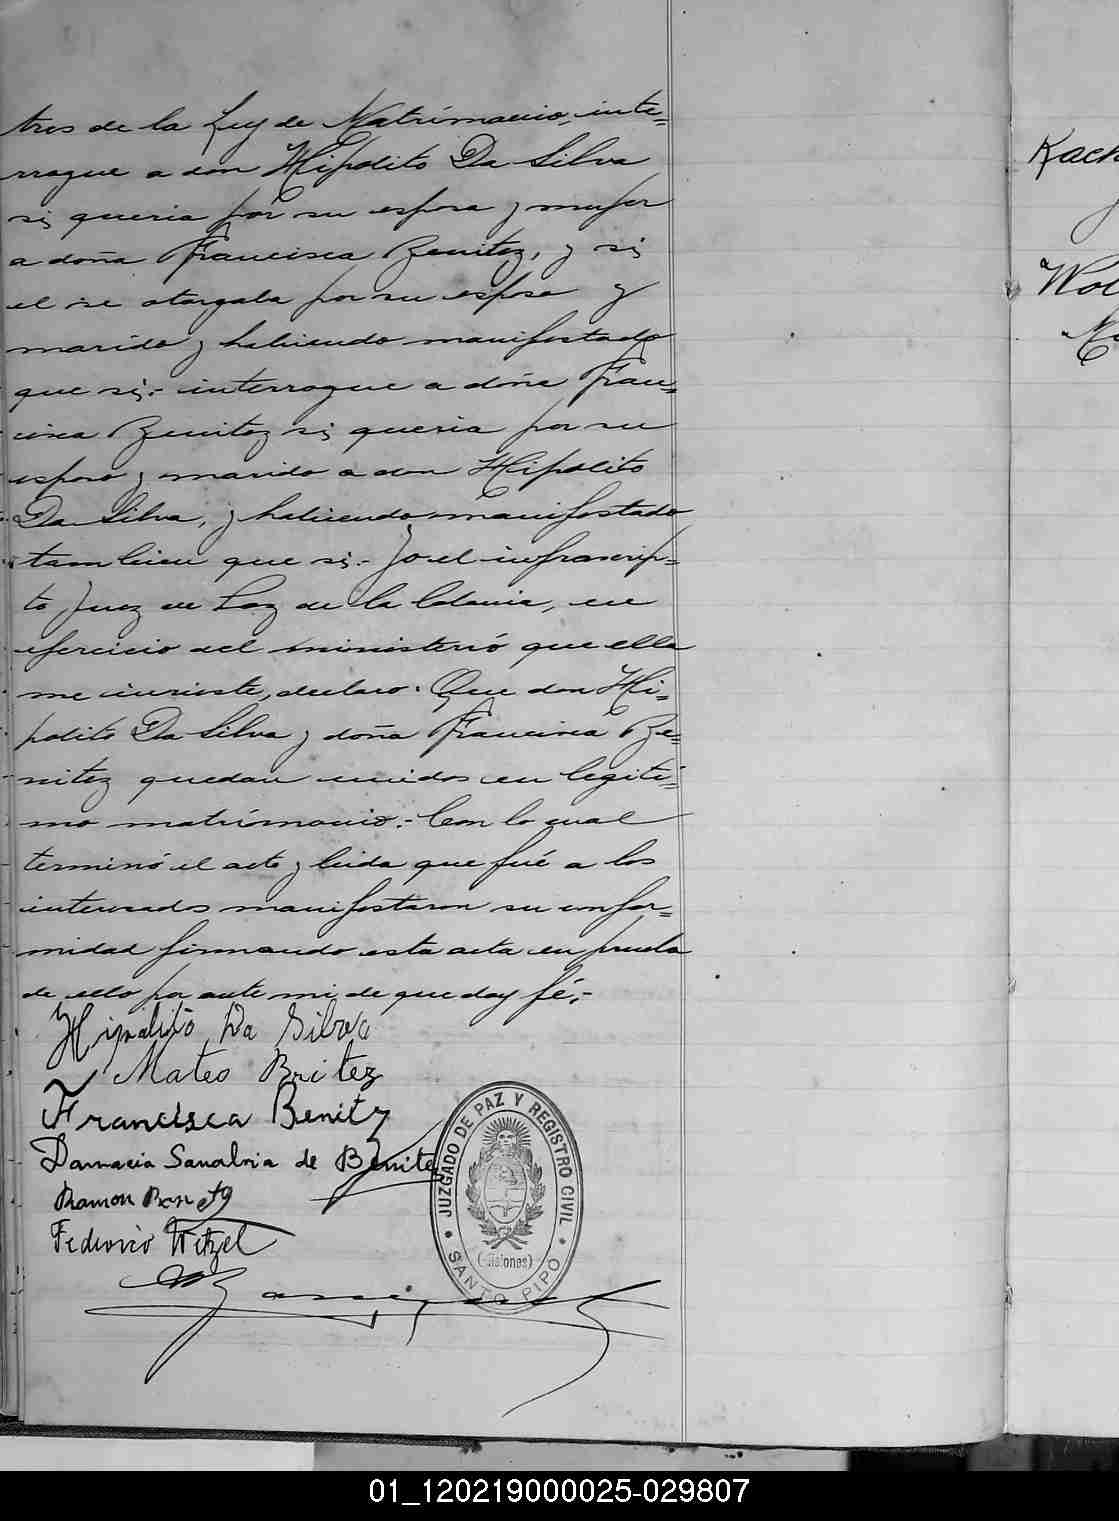 tres de la Ley de Matrimonio, inte=
rrogue a don Hipolito Da Silva
si queria por su esposa y mujer
a doña Francisca Benitez, y si
el se otorgaba por su esposo y
marido y habiendo manifestado
que si.- interrogue a doña Fran=
cisca Benitez si queria por su
esposo y marido a don Hipolito
Da Silva, y habiendo manifestado
tambien que si.- Yo el infrascrip=
to Juez de Paz de la Colonia, en
ejercicio del ministerió que ella
me inviste, declaro: Que don Hi=
polito Da Silva y doña Francisca Be=
nitez quedan unidos en legiti=
mo matrimonio.- Con lo cual
terminó el acto y leida que fué a los
interesados manifestaron su confor=
midad firmando esta acta en prueba
de ello por ante mi de que doy fé,-
Hipolito Da Silva
Mateo Britez
Francisca Benitz
Damacia Sanabria de Benite
Ramon
Federico Wetzel
JUZGADO DE PAZ Y REGISTRO CIVIL
(Misiones)
SANTO PIPO
Kach
Wol
01_120219000025-029807